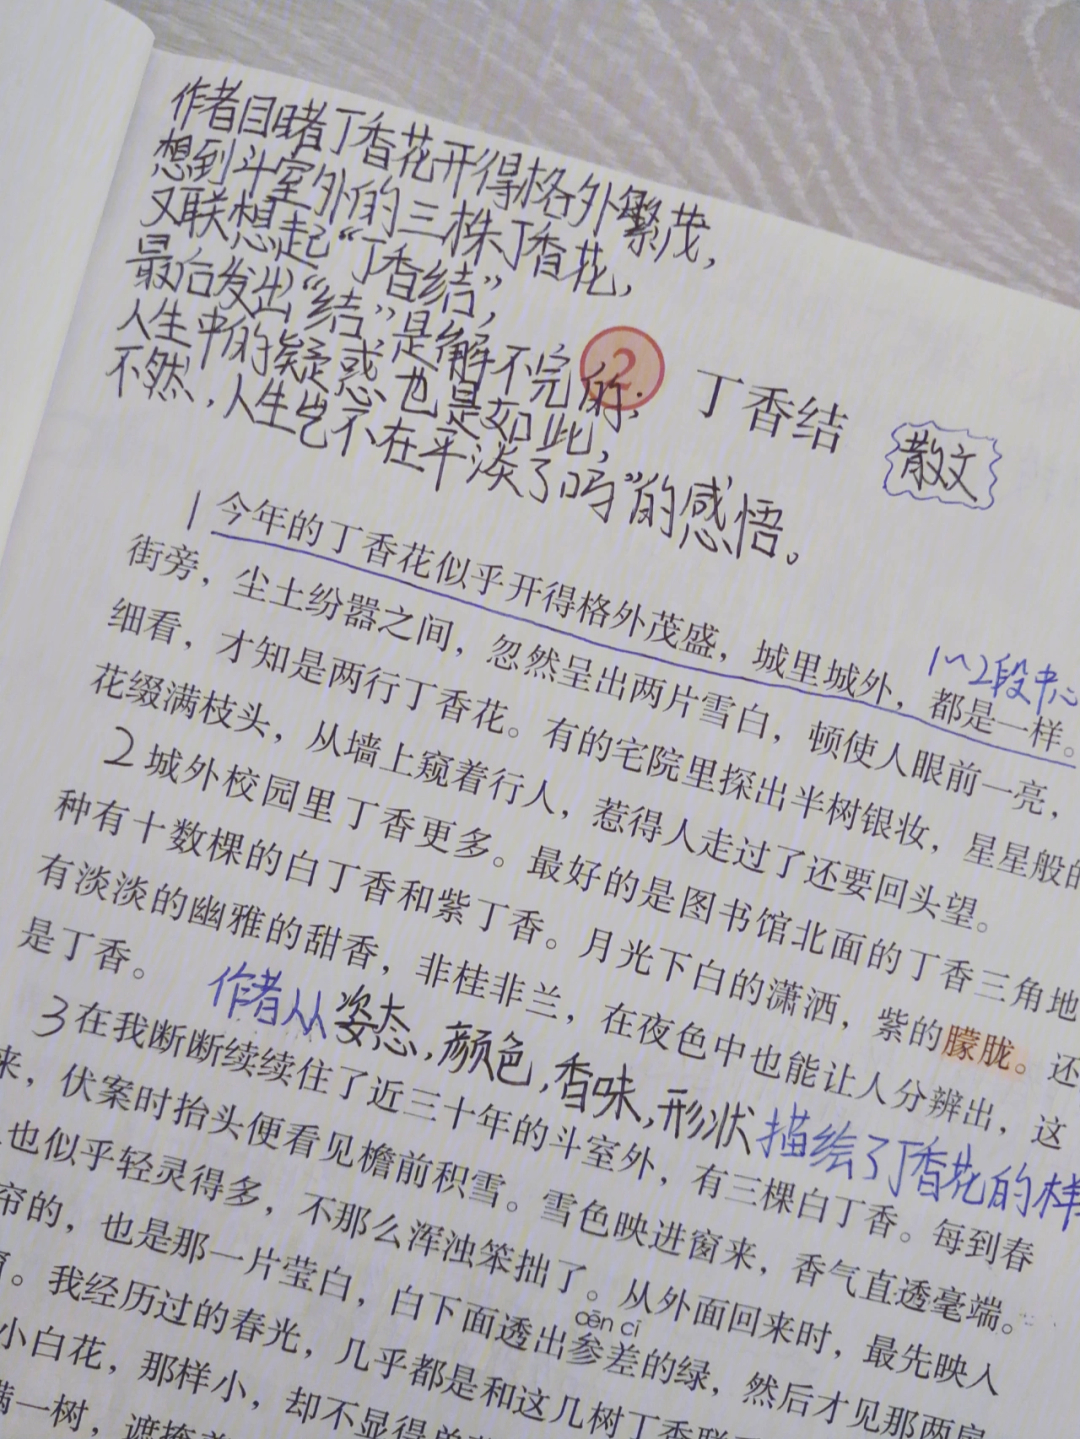 作者目睹丁香花开得格外繁茂,
想到斗室外的三株丁香花,
又联想起“丁香结”,
最后发出“结”是解不完的;
人生中的疑惑也是如此,
不然,人生岂不在平淡了吗”的感悟。
2 丁香结
散文
1 今年的丁香花似乎开得格外茂盛，城里城外，都是一样。
1~2段中心
街旁，尘土纷嚣之间，忽然呈出两片雪白，顿使人眼前一亮，
细看，才知是两行丁香花。有的宅院里探出半树银妆，星星般的
花缀满枝头，从墙上窥着行人，惹得人走过了还要回头望。
2 城外校园里丁香更多。最好的是图书馆北面的丁香三角地
种有十数棵的白丁香和紫丁香。月光下白的潇洒，紫的朦胧。还
有淡淡的幽雅的甜香，非桂非兰，在夜色中也能让人分辨出，这
是丁香。
作者从姿态,颜色,香味,形状描绘了丁香花的样
3 在我断断续续住了近三十年的斗室外，有三棵白丁香。每到春
来，伏案时抬头便看见檐前积雪。雪色映进窗来，香气直透毫端。
也似乎轻灵得多，不那么浑浊笨拙了。从外面回来时，最先映入
cēn cī
帘的，也是那一片莹白，白下面透出参差的绿，然后才见那两扇
。我经历过的春光，几乎都是和这几树丁香联
小白花，那样小，却不显得单
满一树，遮掩着